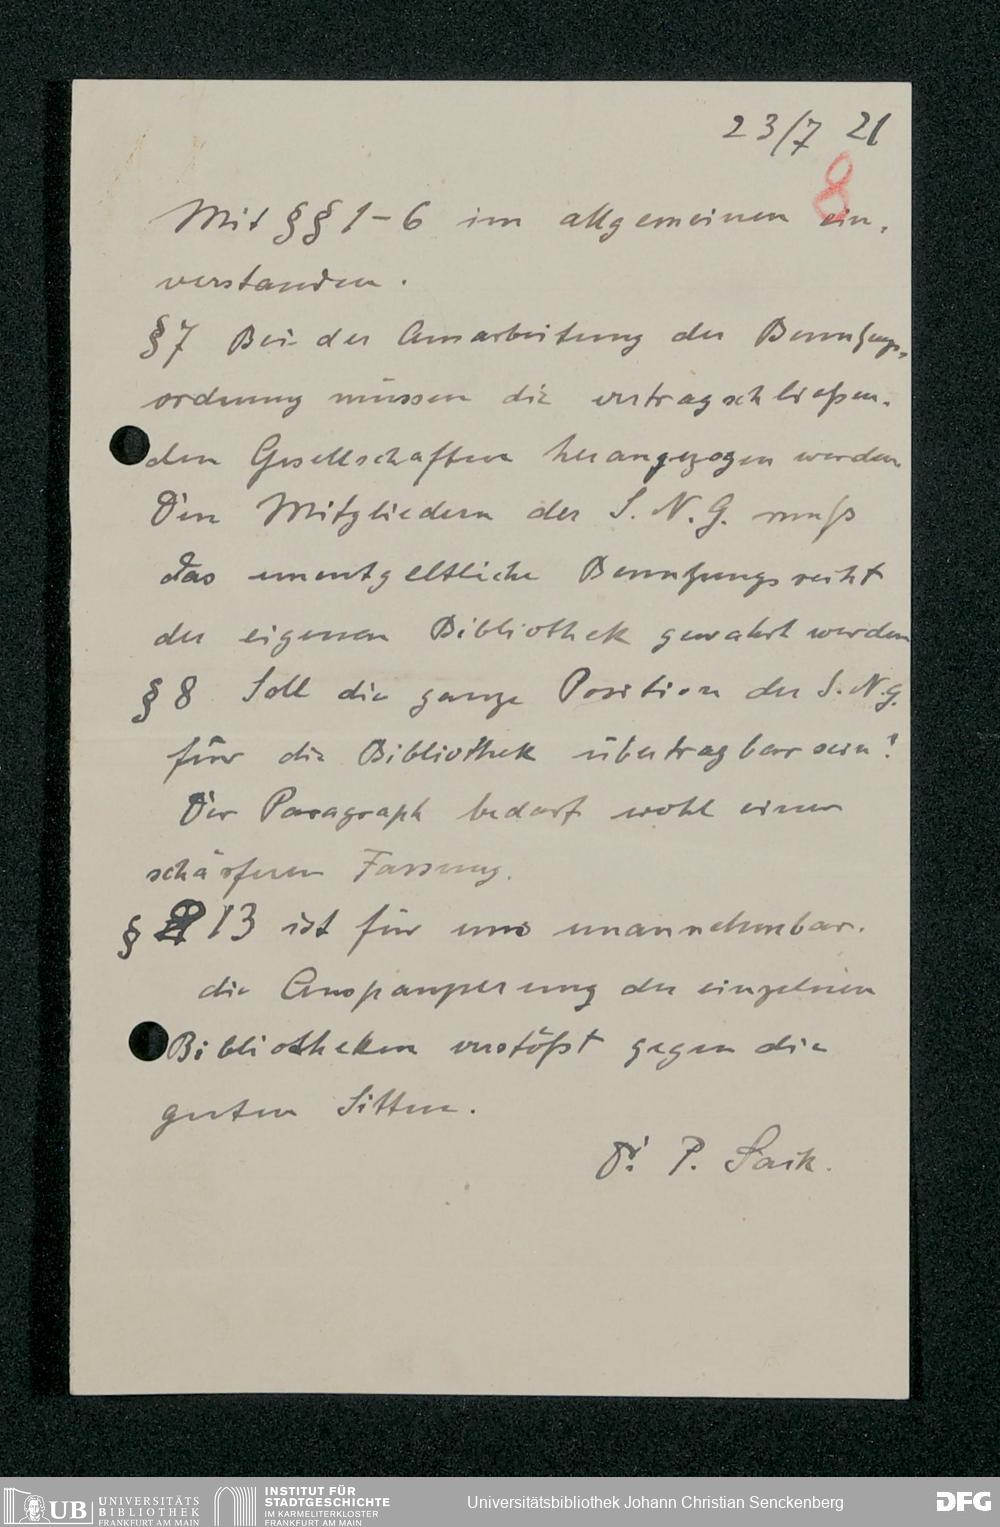 23/7 21
8
Mit §§ 1-6 im allgemeinen ein-
verstanden.
§ 7 Bei der Ausarbeitung der Benutzungs-
ordnung müssen die vertragschließen-
den Gesellschaften herangezogen werden
Den Mitgliedern der S. N. G. muß
das unentgeltliche Benutzungsrecht
der eigenen Bibliothek gewahrt werden
§ 8 Soll die ganze Position der S. N. G.
für die Bibliothek übertragbar sein?
Der Paragraph bedarf wohl einer
schärferen Fassung.
§ 13 ist für uns unannehmbar.
die Auspauperung der einzelnen
Bibliotheken verstößt gegen die
guten Sitten.
Dr. P. Sack.
UB UNIVERSITÄTS
BIBLIOTHEK
FRANKFURT AM MAIN
INSTITUT FÜR
STADTGESCHICHTE
IM KARMELITERKLOSTER
FRANKFURT AM MAIN
Universitätsbibliothek Johann Christian Senckenberg
DFG